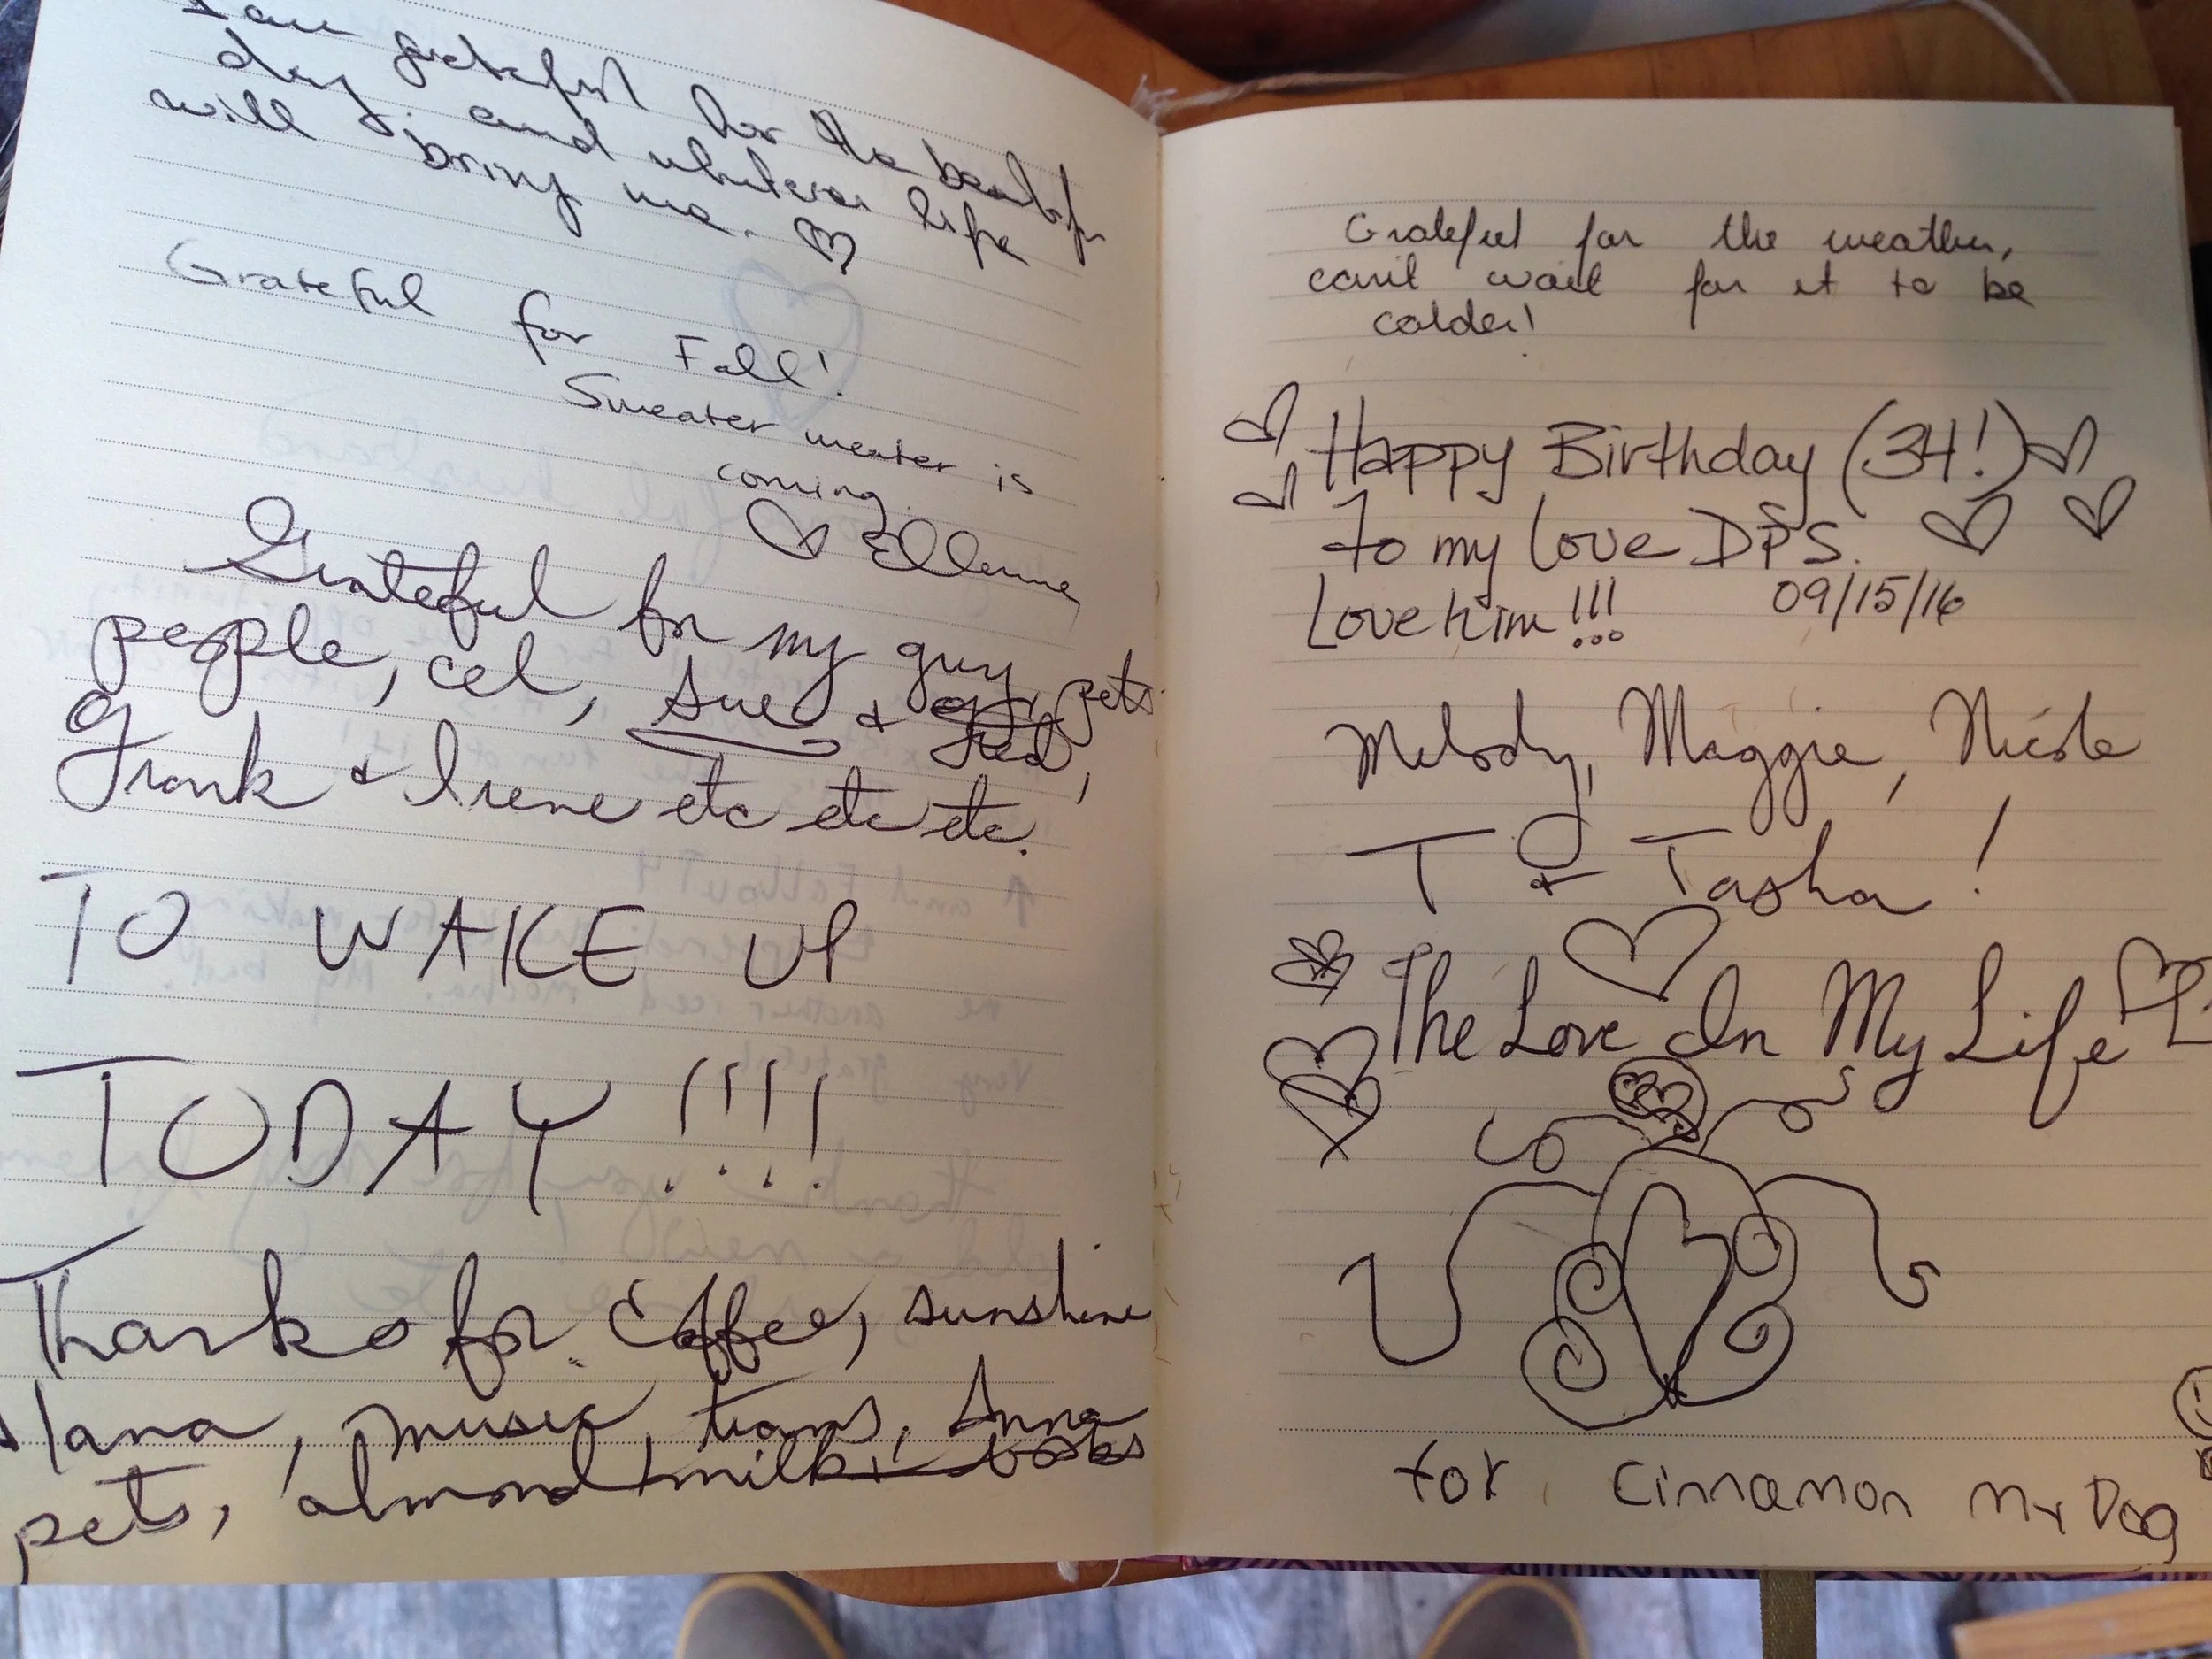 I am grateful for the beautiful
day, and whatever life
will bring me.
Grateful for Fall!
Sweater weater is
coming
Ellenne
Grateful for my guy, pets
people, cel, Sue &
Frank & Irene etc etc etc.
TO WAKE UP
TODAY !!!!
Thanks for Coffee, sunshine
Ilana, music, trams, Anna
pets, almond milk, books
Grateful for the weather,
can't wait for it to be
colder!
Happy Birthday (34!)
To my love DPS.
Love him!!! 09/15/16
Melody, Maggie, Nicole
T & Tasha!
The Love In My Life
for Cinnamon My Dog